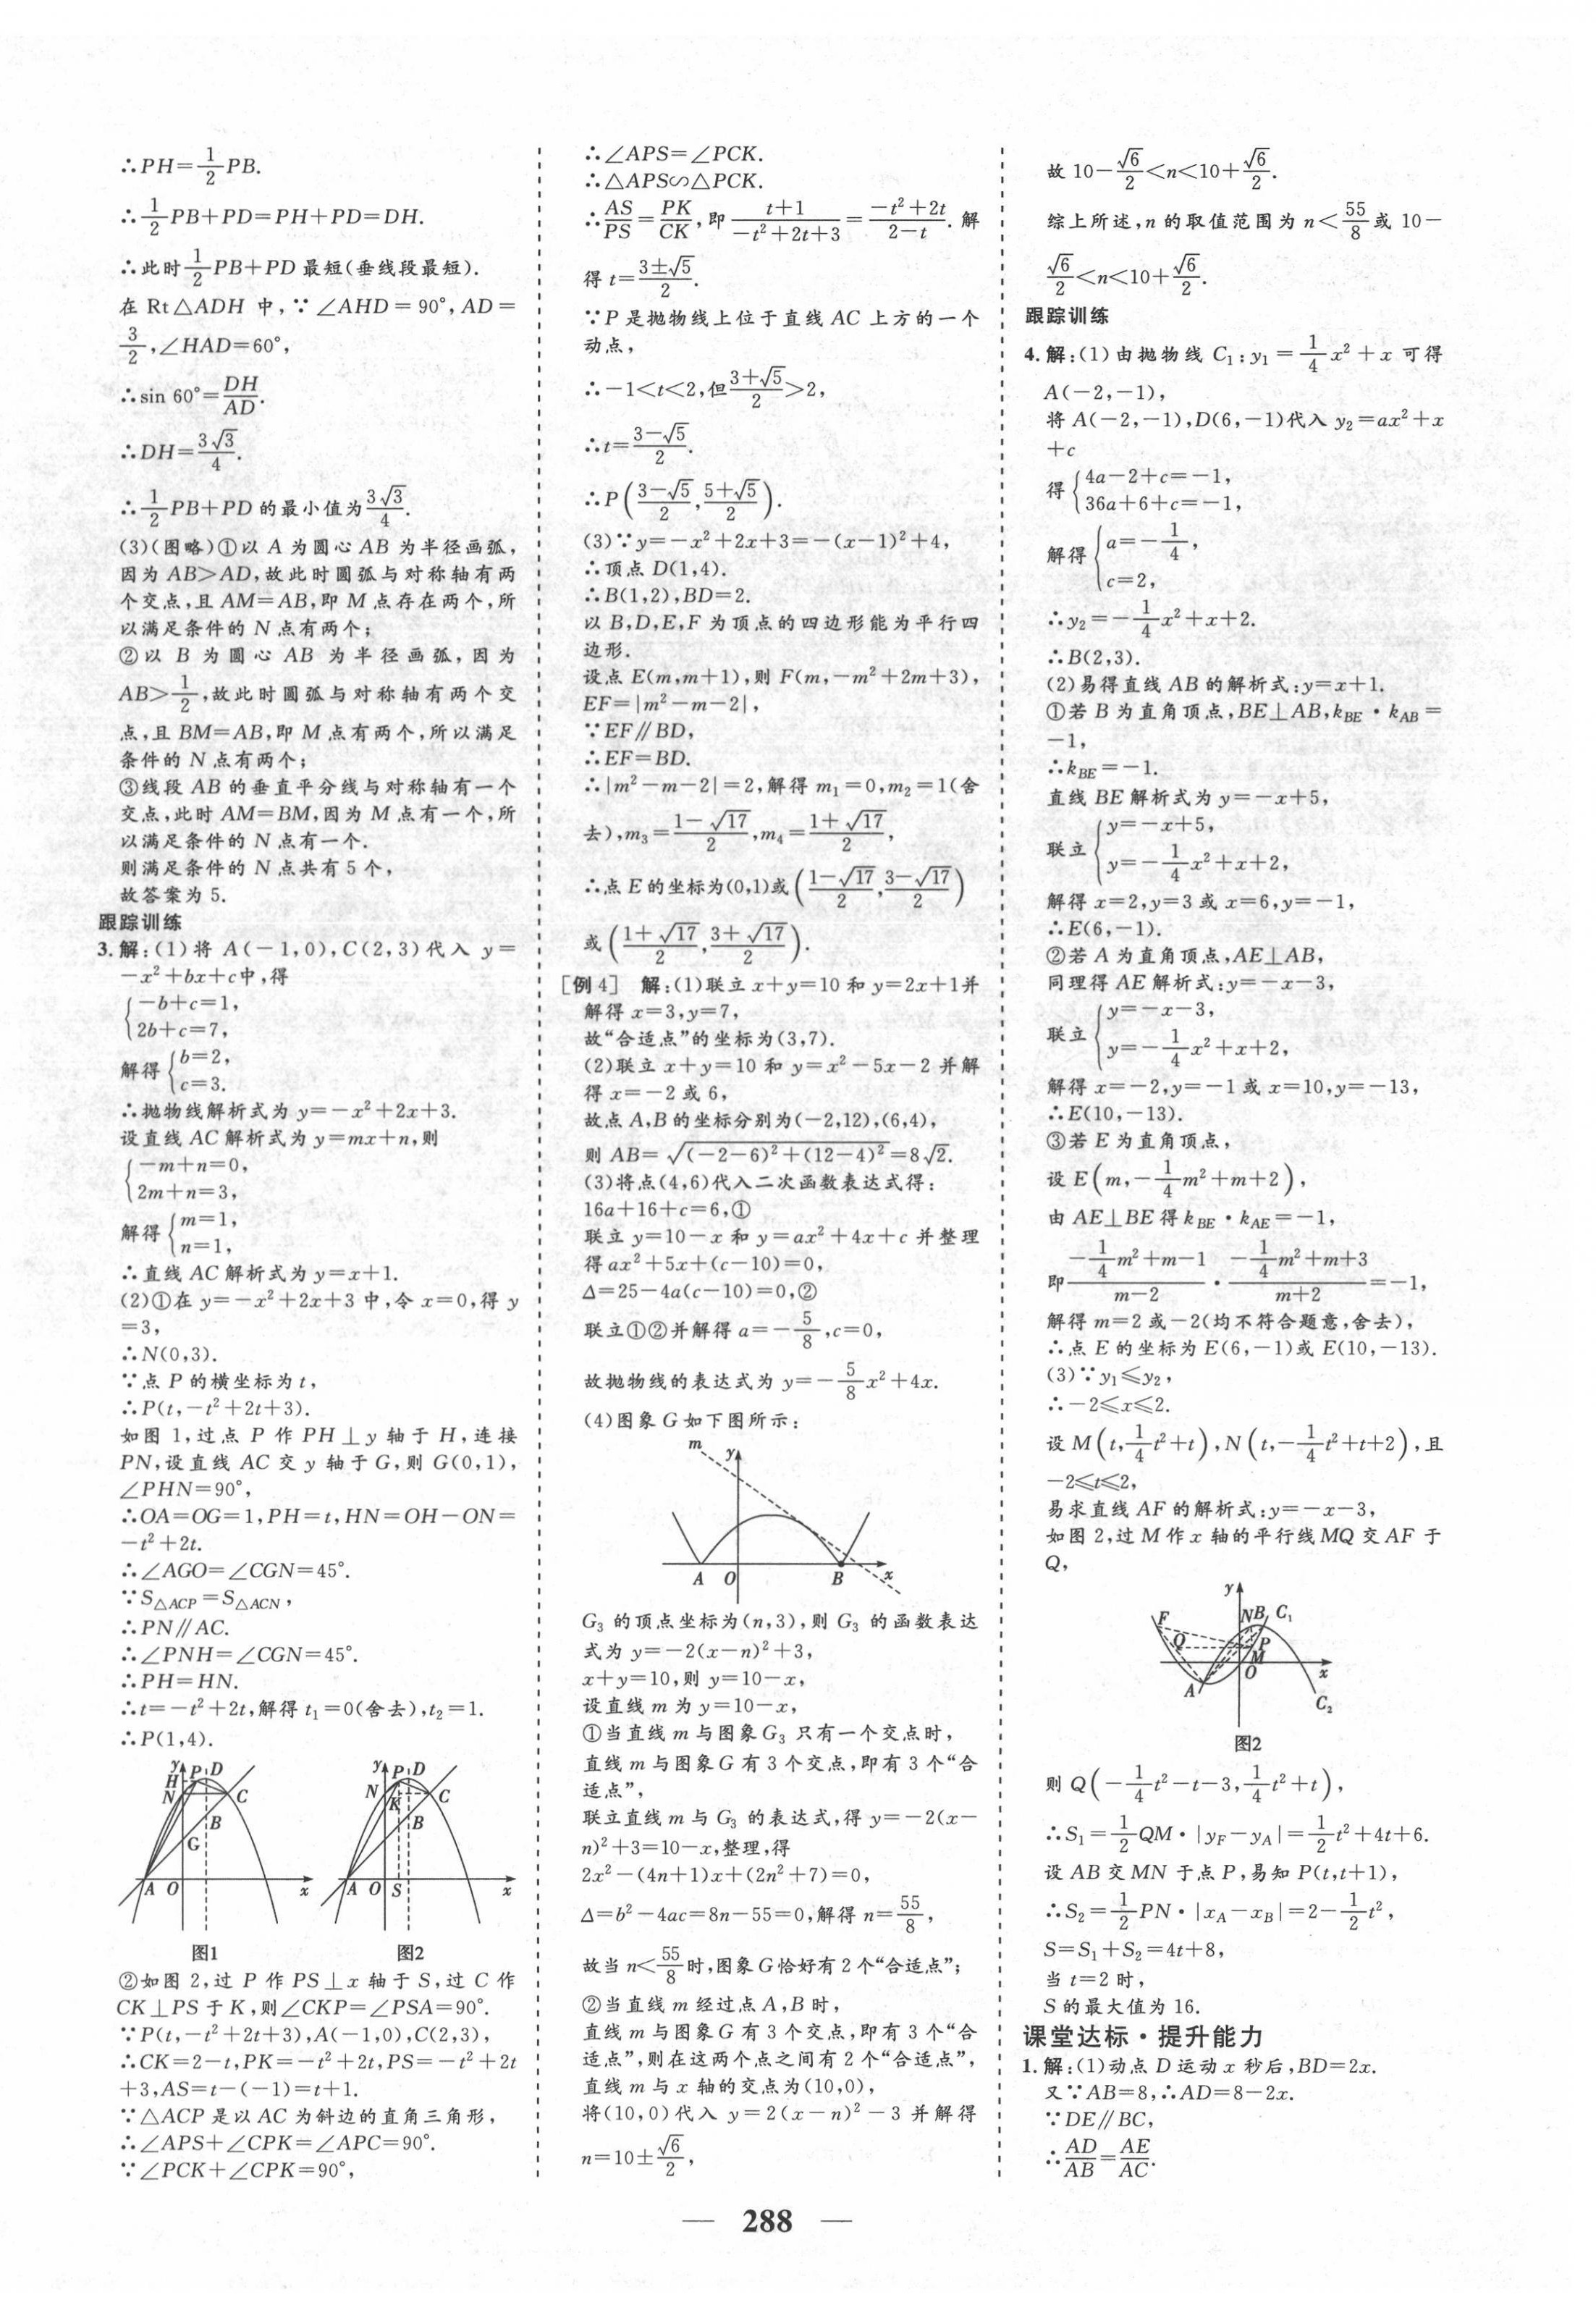 ∴PH=1/2PB.
∴1/2PB+PD=PH+PD=DH.
∴此时1/2PB+PD最短(垂线段最短).
在Rt△ADH中,∵∠AHD=90°,AD=
3/2,∠HAD=60°,
∴sin 60°=DH/AD.
∴DH=3√3/4.
∴1/2PB+PD的最小值为3√3/4.
(3)(图略)①以A为圆心AB为半径画弧,
因为AB>AD,故此时圆弧与对称轴有两
个交点,且AM=AB,即M点存在两个,所
以满足条件的N点有两个;
②以B为圆心AB为半径画弧,因为
AB>1/2,故此时圆弧与对称轴有两个交
点,且BM=AB,即M点有两个,所以满足
条件的N点有两个;
③线段AB的垂直平分线与对称轴有一个
交点,此时AM=BM,因为M点有一个,所
以满足条件的N点有一个.
则满足条件的N点共有5个,
故答案为5.
跟踪训练
3.解:(1)将A(-1,0),C(2,3)代入y=
-x²+bx+c中,得
{-b+c=1,
2b+c=7,
解得{b=2,
c=3.
∴抛物线解析式为y=-x²+2x+3.
设直线AC解析式为y=mx+n,则
{-m+n=0,
2m+n=3,
解得{m=1,
n=1,
∴直线AC解析式为y=x+1.
(2)①在y=-x²+2x+3中,令x=0,得y
=3,
∴N(0,3).
∵点P的横坐标为t,
∴P(t,-t²+2t+3).
如图1,过点P作PH⊥y轴于H,连接
PN,设直线AC交y轴于G,则G(0,1),
∠PHN=90°,
∴OA=OG=1,PH=t,HN=OH-ON=
-t²+2t.
∴∠AGO=∠CGN=45°.
∵S△ACP=S△ACN,
∴PN∥AC.
∴∠PNH=∠CGN=45°.
∴PH=HN.
∴t=-t²+2t,解得t₁=0(舍去),t₂=1.
∴P(1,4).
y P D
H
N
C
B
G
A O x
图1
y P D
N
K
C
B
A O S x
图2
②如图2,过P作PS⊥x轴于S,过C作
CK⊥PS于K,则∠CKP=∠PSA=90°.
∵P(t,-t²+2t+3),A(-1,0),C(2,3),
∴CK=2-t,PK=-t²+2t,PS=-t²+2t
+3,AS=t-(-1)=t+1.
∵△ACP是以AC为斜边的直角三角形,
∴∠APS+∠CPK=∠APC=90°.
∵∠PCK+∠CPK=90°,
∴∠APS=∠PCK.
∴△APS∽△PCK.
∴AS/PS=PK/CK,即(t+1)/(-t²+2t+3)=(-t²+2t)/(2-t).解
得t=(3±√5)/2.
∵P是抛物线上位于直线AC上方的一个
动点,
∴-1<t<2,但(3+√5)/2>2,
∴t=(3-√5)/2.
∴P((3-√5)/2,(5+√5)/2).
(3)∵y=-x²+2x+3=-(x-1)²+4,
∴顶点D(1,4).
∴B(1,2),BD=2.
以B,D,E,F为顶点的四边形能为平行四
边形.
设点E(m,m+1),则F(m,-m²+2m+3),
EF=|m²-m-2|,
∵EF∥BD,
∴EF=BD.
∴|m²-m-2|=2,解得m₁=0,m₂=1(舍
去),m₃=(1-√17)/2,m₄=(1+√17)/2,
∴点E的坐标为(0,1)或((1-√17)/2,(3-√17)/2)
或((1+√17)/2,(3+√17)/2).
[例4] 解:(1)联立x+y=10和y=2x+1并
解得x=3,y=7,
故“合适点”的坐标为(3,7).
(2)联立x+y=10和y=x²-5x-2并解
得x=-2或6,
故点A,B的坐标分别为(-2,12),(6,4),
则AB=√((-2-6)²+(12-4)²)=8√2.
(3)将点(4,6)代入二次函数表达式得:
16a+16+c=6,①
联立y=10-x和y=ax²+4x+c并整理
得ax²+5x+(c-10)=0,
Δ=25-4a(c-10)=0,②
联立①②并解得a=-5/8,c=0,
故抛物线的表达式为y=-5/8x²+4x.
(4)图象G如下图所示:
m y
A O B x
G₃的顶点坐标为(n,3),则G₃的函数表达
式为y=-2(x-n)²+3,
x+y=10,则y=10-x,
设直线m为y=10-x,
①当直线m与图象G₃只有一个交点时,
直线m与图象G有3个交点,即有3个“合
适点”,
联立直线m与G₃的表达式,得y=-2(x-
n)²+3=10-x,整理,得
2x²-(4n+1)x+(2n²+7)=0,
Δ=b²-4ac=8n-55=0,解得n=55/8,
故当n<55/8时,图象G恰好有2个“合适点”;
②当直线m经过点A,B时,
直线m与图象G有3个交点,即有3个“合
适点”,则在这两个点之间有2个“合适点”,
直线m与x轴的交点为(10,0),
将(10,0)代入y=2(x-n)²-3并解得
n=10±√6/2,
故10-√6/2<n<10+√6/2.
综上所述,n的取值范围为n<55/8或10-
√6/2<n<10+√6/2.
跟踪训练
4.解:(1)由抛物线C₁:y₁=1/4x²+x可得
A(-2,-1),
将A(-2,-1),D(6,-1)代入y₂=ax²+x
+c
得{4a-2+c=-1,
36a+6+c=-1,
解得{a=-1/4,
c=2,
∴y₂=-1/4x²+x+2.
∴B(2,3).
(2)易得直线AB的解析式:y=x+1.
①若B为直角顶点,BE⊥AB,kBE·kAB=
-1,
∴kBE=-1.
直线BE解析式为y=-x+5,
联立{y=-x+5,
y=-1/4x²+x+2,
解得x=2,y=3或x=6,y=-1,
∴E(6,-1).
②若A为直角顶点,AE⊥AB,
同理得AE解析式:y=-x-3,
联立{y=-x-3,
y=-1/4x²+x+2,
解得x=-2,y=-1或x=10,y=-13,
∴E(10,-13).
③若E为直角顶点,
设E(m,-1/4m²+m+2),
由AE⊥BE得kBE·kAE=-1,
即(-1/4m²+m-1)/(m-2)·(-1/4m²+m+3)/(m+2)=-1,
解得m=2或-2(均不符合题意,舍去),
∴点E的坐标为E(6,-1)或E(10,-13).
(3)∵y₁≤y₂,
∴-2≤x≤2.
设M(t,1/4t²+t),N(t,-1/4t²+t+2),且
-2≤t≤2,
易求直线AF的解析式:y=-x-3,
如图2,过M作x轴的平行线MQ交AF于
Q,
y
F N B C₁
Q P
M
O x
A C₂
图2
则Q(-1/4t²-t-3,1/4t²+t),
∴S₁=1/2QM·|yF-yA|=1/2t²+4t+6.
设AB交MN于点P,易知P(t,t+1),
∴S₂=1/2PN·|xA-xB|=2-1/2t²,
S=S₁+S₂=4t+8,
当t=2时,
S的最大值为16.
课堂达标·提升能力
1.解:(1)动点D运动x秒后,BD=2x.
又∵AB=8,∴AD=8-2x.
∵DE∥BC,
∴AD/AB=AE/AC.
288